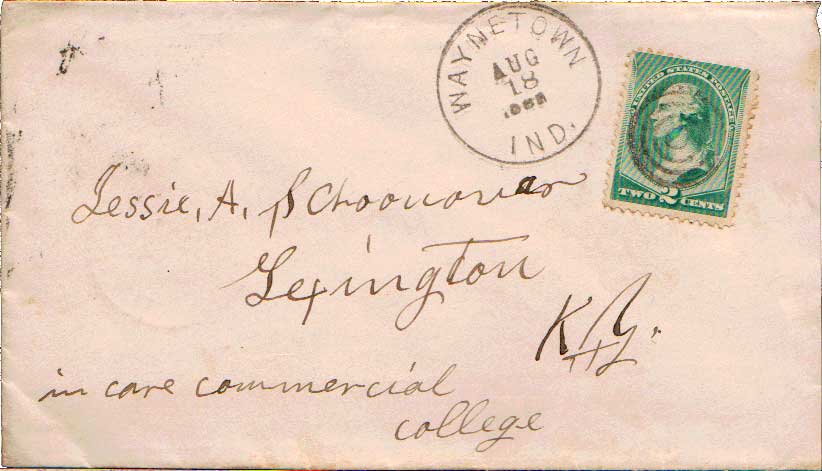 WAYNETOWN
AUG
18
1888
IND.
UNITED STATES POSTAGE
TWO 2 CENTS
Jessie, A, Schoonover
Lexington
Ky.
in care commercial
college